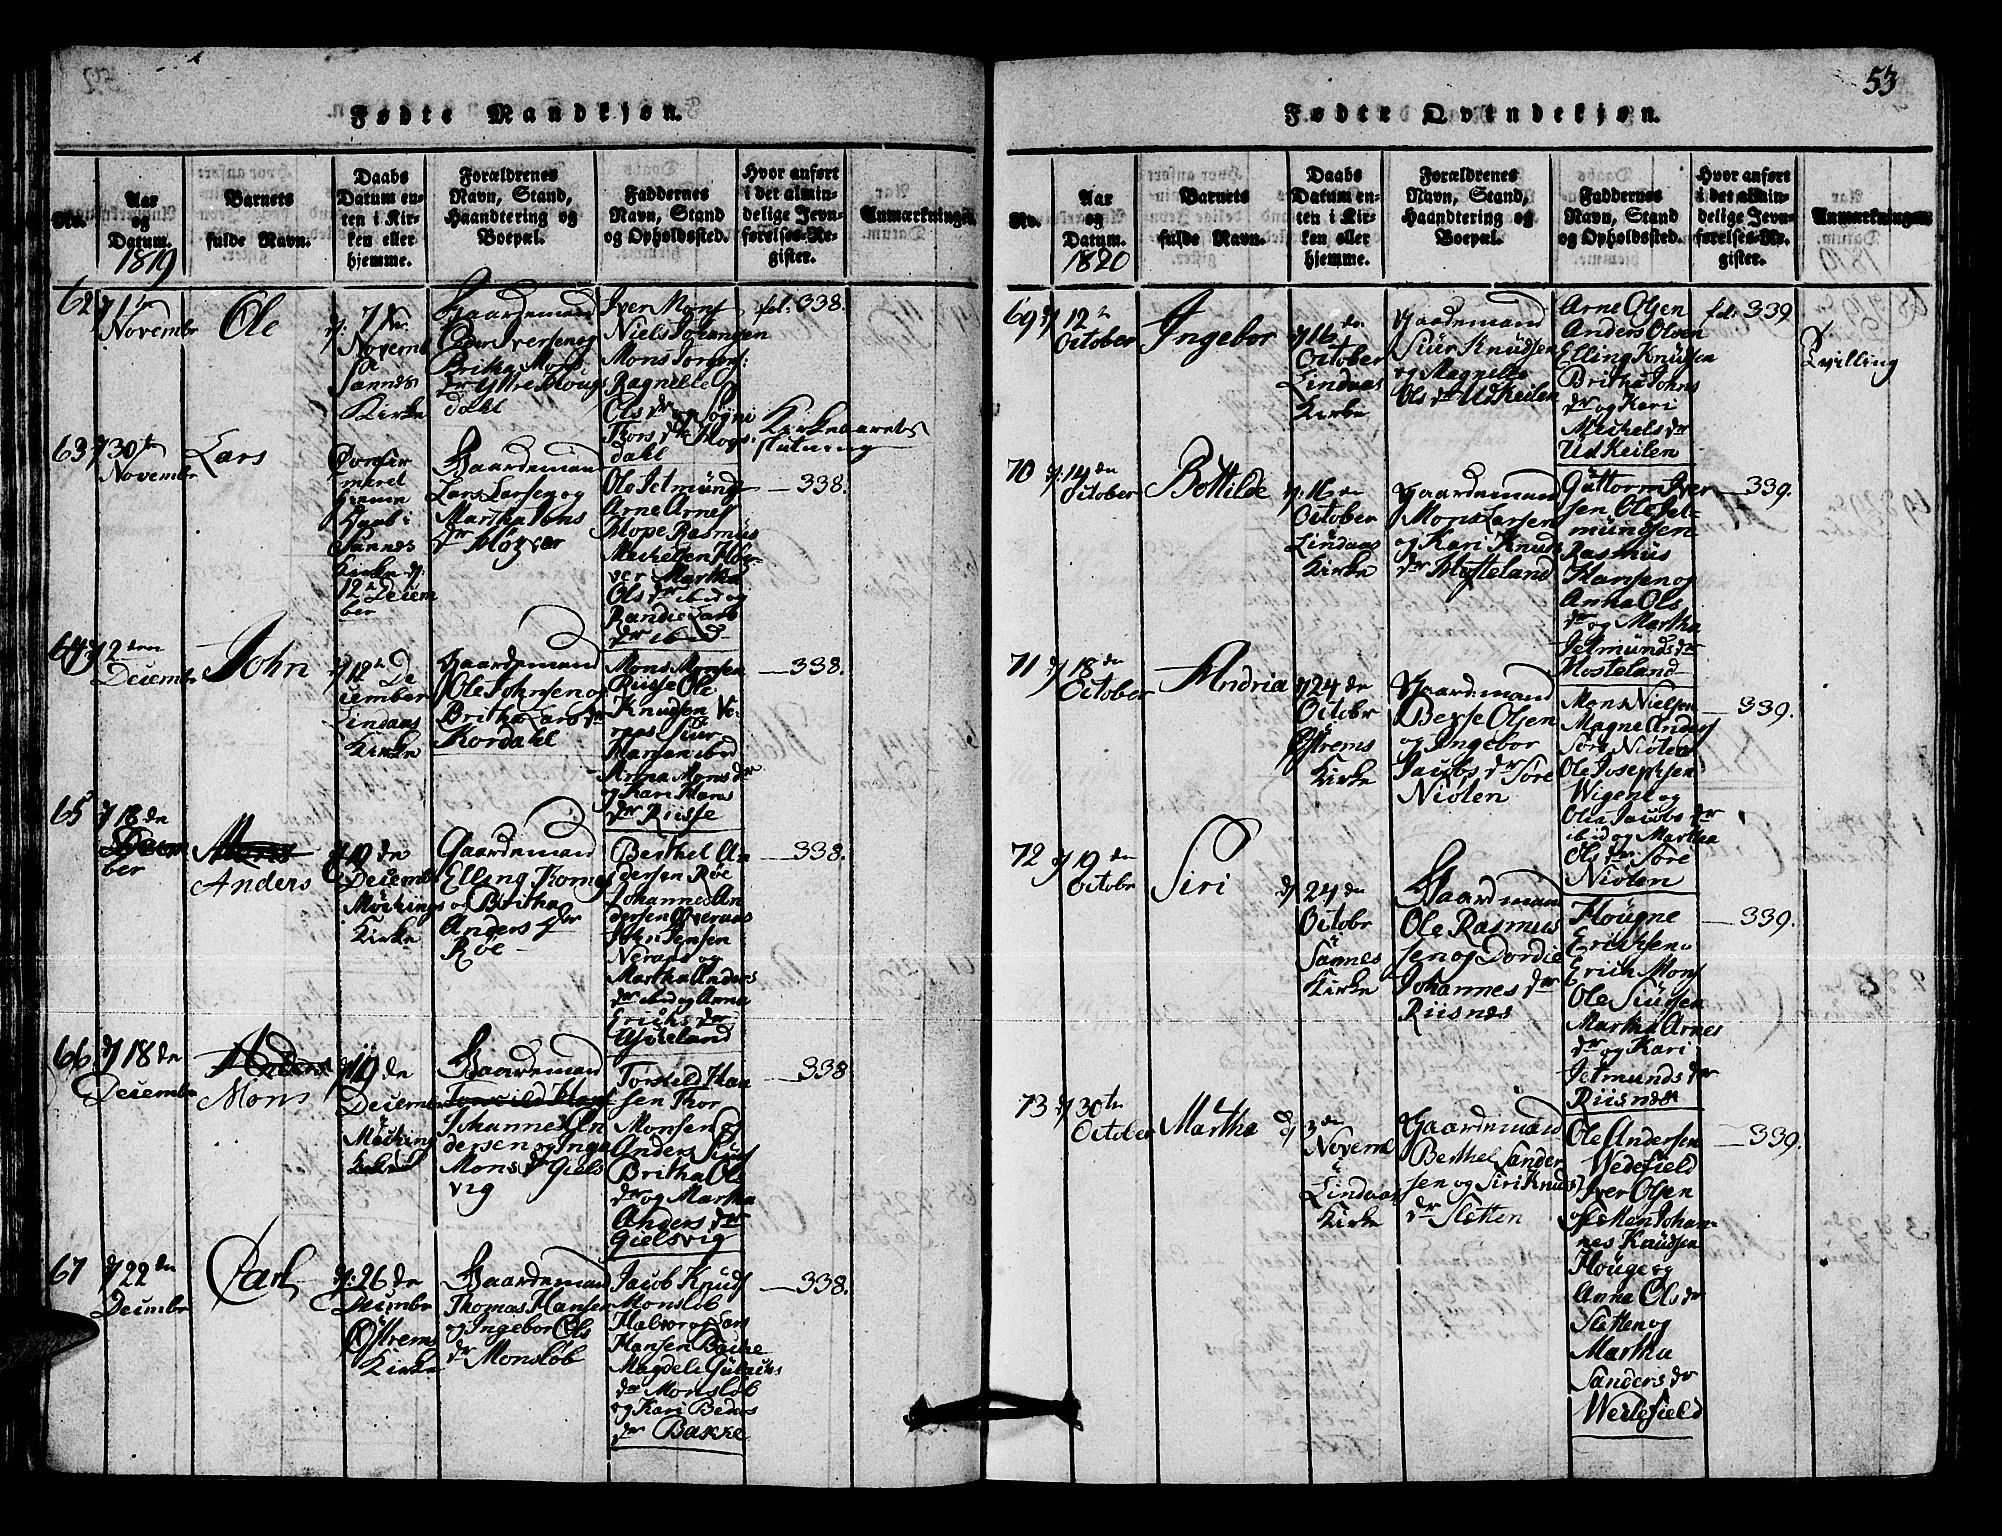 Fødte Mandkjøn.
No.
Aar
og
Datum.
1819
Barnets
fulde Navn.
Daabs
Datum en-
ten i Kir-
ken eller
hjemme.
Forældrenes
Navn, Stand,
Haandtering og
Boepæl.
Faddernes
Navn, Stand
og Opholdssted.
Hvor anført
i det almin-
delige Jevn-
førelses-Re-
gister.
Anmærkninger.
62
1
Novembr
Ole
7
Novemb
Sannes
Kirke
Gaardemand
Peder Iversen og
Britha Mogs
dr Yttre Houg
dahl
Iver Mons
Niels Johansen
Mons
Ragnelle
Ols dr og Sogni
Thors dr Hogs
dahl
fol: 338.
63
30
Novembr
Lars
hjemme
Daab i
Sannes
Kirke d
12 Deiem
ber
Gaardemand
Lars Larsen og
Martha Jons
dr
Ole Jetmund
Arne Arnes
Hope Rasmus
Michelsen
Martha
Ols dr ibid og
Randie Lars
dr ibid
Kirke
slutning
338.
64
2den
Deiembr
John
12 De
iember
Lindaas
Kirke
Gaardemand
Ole Johnsen og
Britha Lars dr
Kordahl
Mons Monsen
Riise Ole
Knudsen Ve
raas Siur
Hansen ibid
Anna Mons dr
og Kari Hans
dr Riisse
338.
65
18 de
Deiem
ber
Mons
Anders
19 de
Deiember
Möckings
Kirke
Gaardemand
Elling
og Britha
Anders dr
Röe
Berthel An
dersen Röe
Johannes An
dersen Överaas
John Jensen
Neraas og
Martha Anders
dr ibid og Anna
Erichs dr
338.
66
18 de
Deiembr
Anders
Mons
19 de
Deiember
Möcking
Kirke
Gaardemand
Torskild Hans
Johannes An
dersen og Inga
Mons dr Giels
vig
Torskild Han
sen Thor
Monsen og
Anders Siurs
Britha Ole
dr og Martha
Anders dr
Gielsvig
338
67
22 de
Deiembr
Carl
26 de
Deiembr
Östrems
Kirke
Gaardemand
Thomas Hansen
og Ingebor Ols
dr Monslöb
Jacob Knuds
Monslöb
Halvor og Lars
Hansen Bakke
Magdeli
dr Monslöb
og Kari Beders
dr Bakke
338.
53
Fødte Qvindekjøn.
No.
Aar
og
Datum.
1820
Barnets
fulde Navn.
Daabs
Datum en-
ten i Kir-
ken eller
hjemme.
Forældrenes
Navn, Stand,
Haandtering og
Boepæl.
Faddernes
Navn, Stand
og Opholdssted.
Hvor anført
i det almin-
delige Jevn-
førelses-Re-
gister.
Anmærkninger.
69
12
October
Ingebor
16 de
October
Lindaas
Kirke
Gaardemand
Siur Knudsen
og Magnelle
Ols dr Ud Keilen
Arne Olsen
Anders Olsen
Elling Knudsen
Britha Johns
dr og Kari
Michels dr
Ud Keilen
fol: 339
Tvilling
70
14 de
October
Bottilde
16 de
October
Lindaas
Kirke
Gaardemand
Mons Larsen
og Kari Knuds
dr Mosteland
Guttorm Iver
sen Ole Jet-
mundsen
Rasmus
Hansen og
Anna Ols
dr og Martha
Jetmunds dr
Mosteland
339.
71
18 de
October
Andria
24 de
Octobr
Östrems
Kirke
Gaardemand
Berse Olsen
og Ingebor
Jacobs dr Töre
Niölen
Mons Nielsen
Magne Anders
Töre Niölen
Ole Josephsen
Wigene og
Olia Jacobs dr
ibid og Martha
Ols dr Töre
Niölen
339.
72
19 de
Octobr
Siri
24 de
Octobr
Sannes
Kirke
Gaardemand
Ole Rasmus
sen og Dordie
Johannes dr
Riisnes
Hougne
Erichsen
Erich Mons
Ole Siursen
Martha Arnes
dr og Kari
Jetmunds dr
Riisnes
339.
73
30te
October
Martha
3 de
Novemb
i
Lindaas
Kirke
Gaardemand
Berthel Sander
sen og Siri Knuds
dr Sletten
Ole Andersen
Wedefield
Iver Olsen
Sletten Johan-
nes Knudsen
Houge og
Anna Ols dr
Sletten og
Martha
Sanders dr
Wedefield
339.